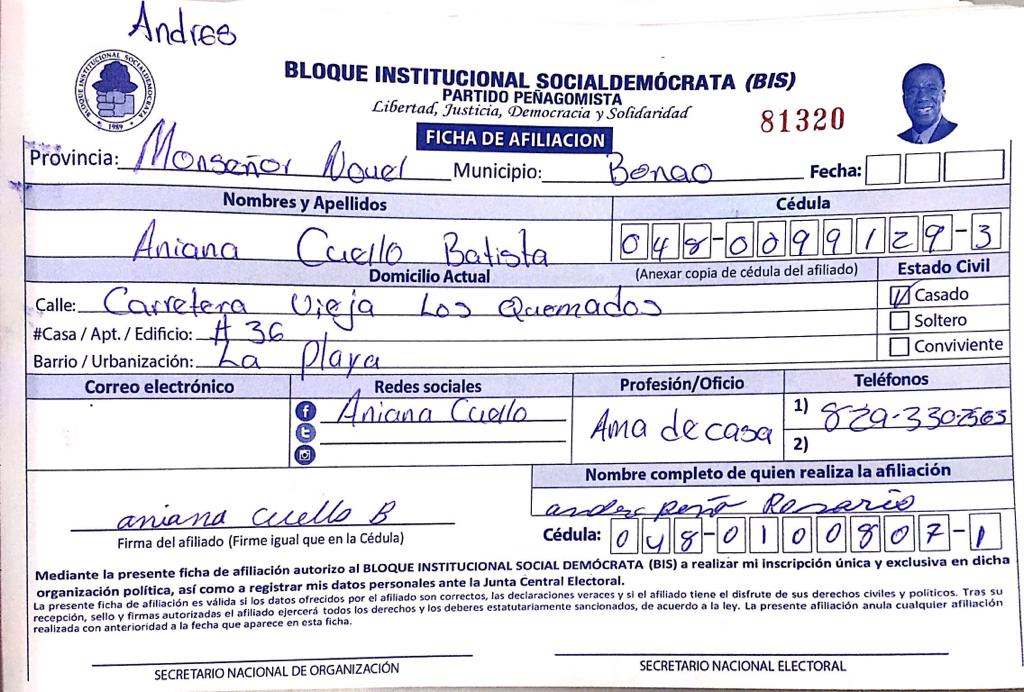 Andres
BLOQUE INSTITUCIONAL SOCIALDEMOCRATA
1989
BLOQUE INSTITUCIONAL SOCIALDEMÓCRATA (BIS)
PARTIDO PEÑAGOMISTA
Libertad, Justicia, Democracia y Solidaridad
81320
FICHA DE AFILIACION
Provincia: Monseñor Nouel Municipio: Bonao Fecha:
Nombres y Apellidos Cédula
Aniana Cuello Batista 048-0099129-3
Domicilio Actual (Anexar copia de cédula del afiliado) Estado Civil
Calle: Carretera Vieja Los Quemados Casado
#Casa / Apt. / Edificio: # 36 Soltero
Barrio / Urbanización: La Playa Conviviente
Correo electrónico Redes sociales Profesión/Oficio Teléfonos
Aniana Cuello Ama de casa 1) 829-330-2563
2)
Nombre completo de quien realiza la afiliación
aniana cuello B Rosario
Firma del afiliado (Firme igual que en la Cédula) Cédula: 048-0100807-1
Mediante la presente ficha de afiliación autorizo al BLOQUE INSTITUCIONAL SOCIAL DEMÓCRATA (BIS) a realizar mi inscripción única y exclusiva en dicha
organización política, así como a registrar mis datos personales ante la Junta Central Electoral.
La presente ficha de afiliación es válida si los datos ofrecidos por el afiliado son correctos, las declaraciones veraces y si el afiliado tiene el disfrute de sus derechos civiles y políticos. Tras su
recepción, sello y firmas autorizadas el afiliado ejercerá todos los derechos y los deberes estatutariamente sancionados, de acuerdo a la ley. La presente afiliación anula cualquier afiliación
realizada con anterioridad a la fecha que aparece en esta ficha.
SECRETARIO NACIONAL DE ORGANIZACIÓN SECRETARIO NACIONAL ELECTORAL